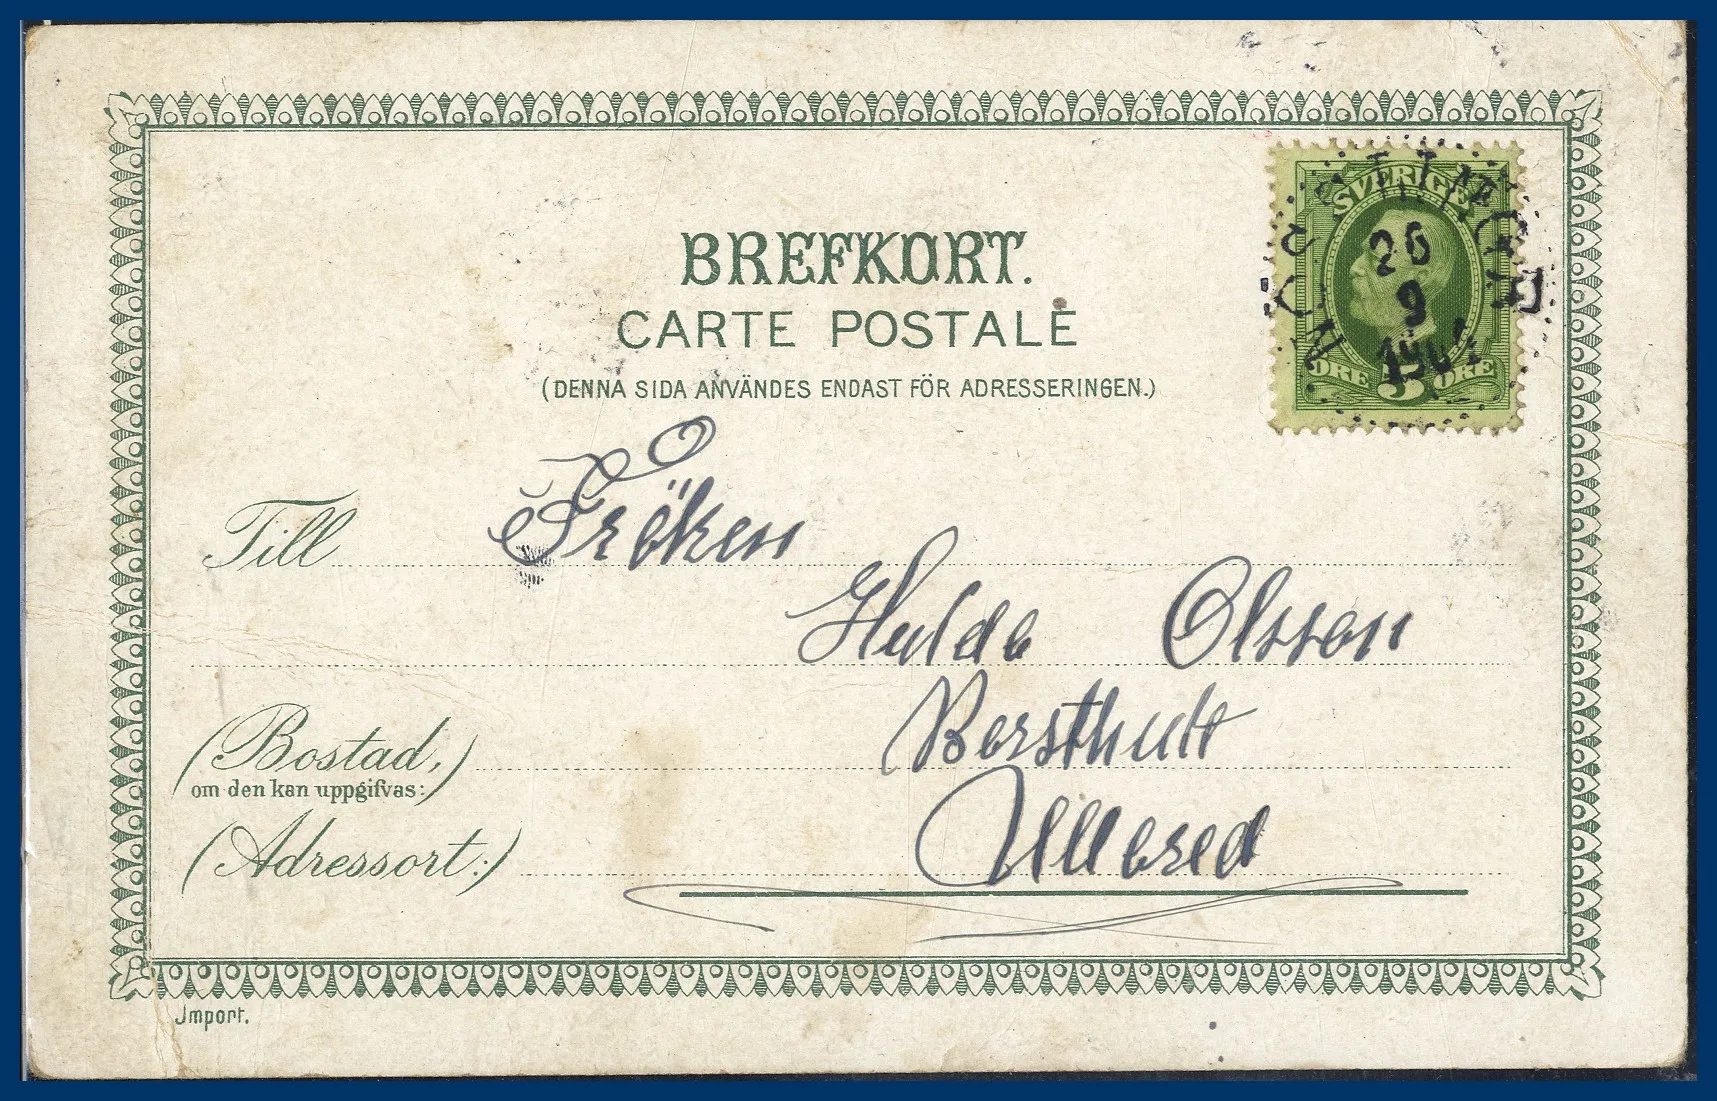 BREFKORT.
CARTE POSTALE
(DENNA SIDA ANVÄNDES ENDAST FÖR ADRESSERINGEN.)
SVERIGE
26
9
1904
ÖRE 5 ÖRE
Till Fröken
Hulda Olsson
(Bostad,)
om den kan uppgifvas:
(Adressort:) Ullared
Import.